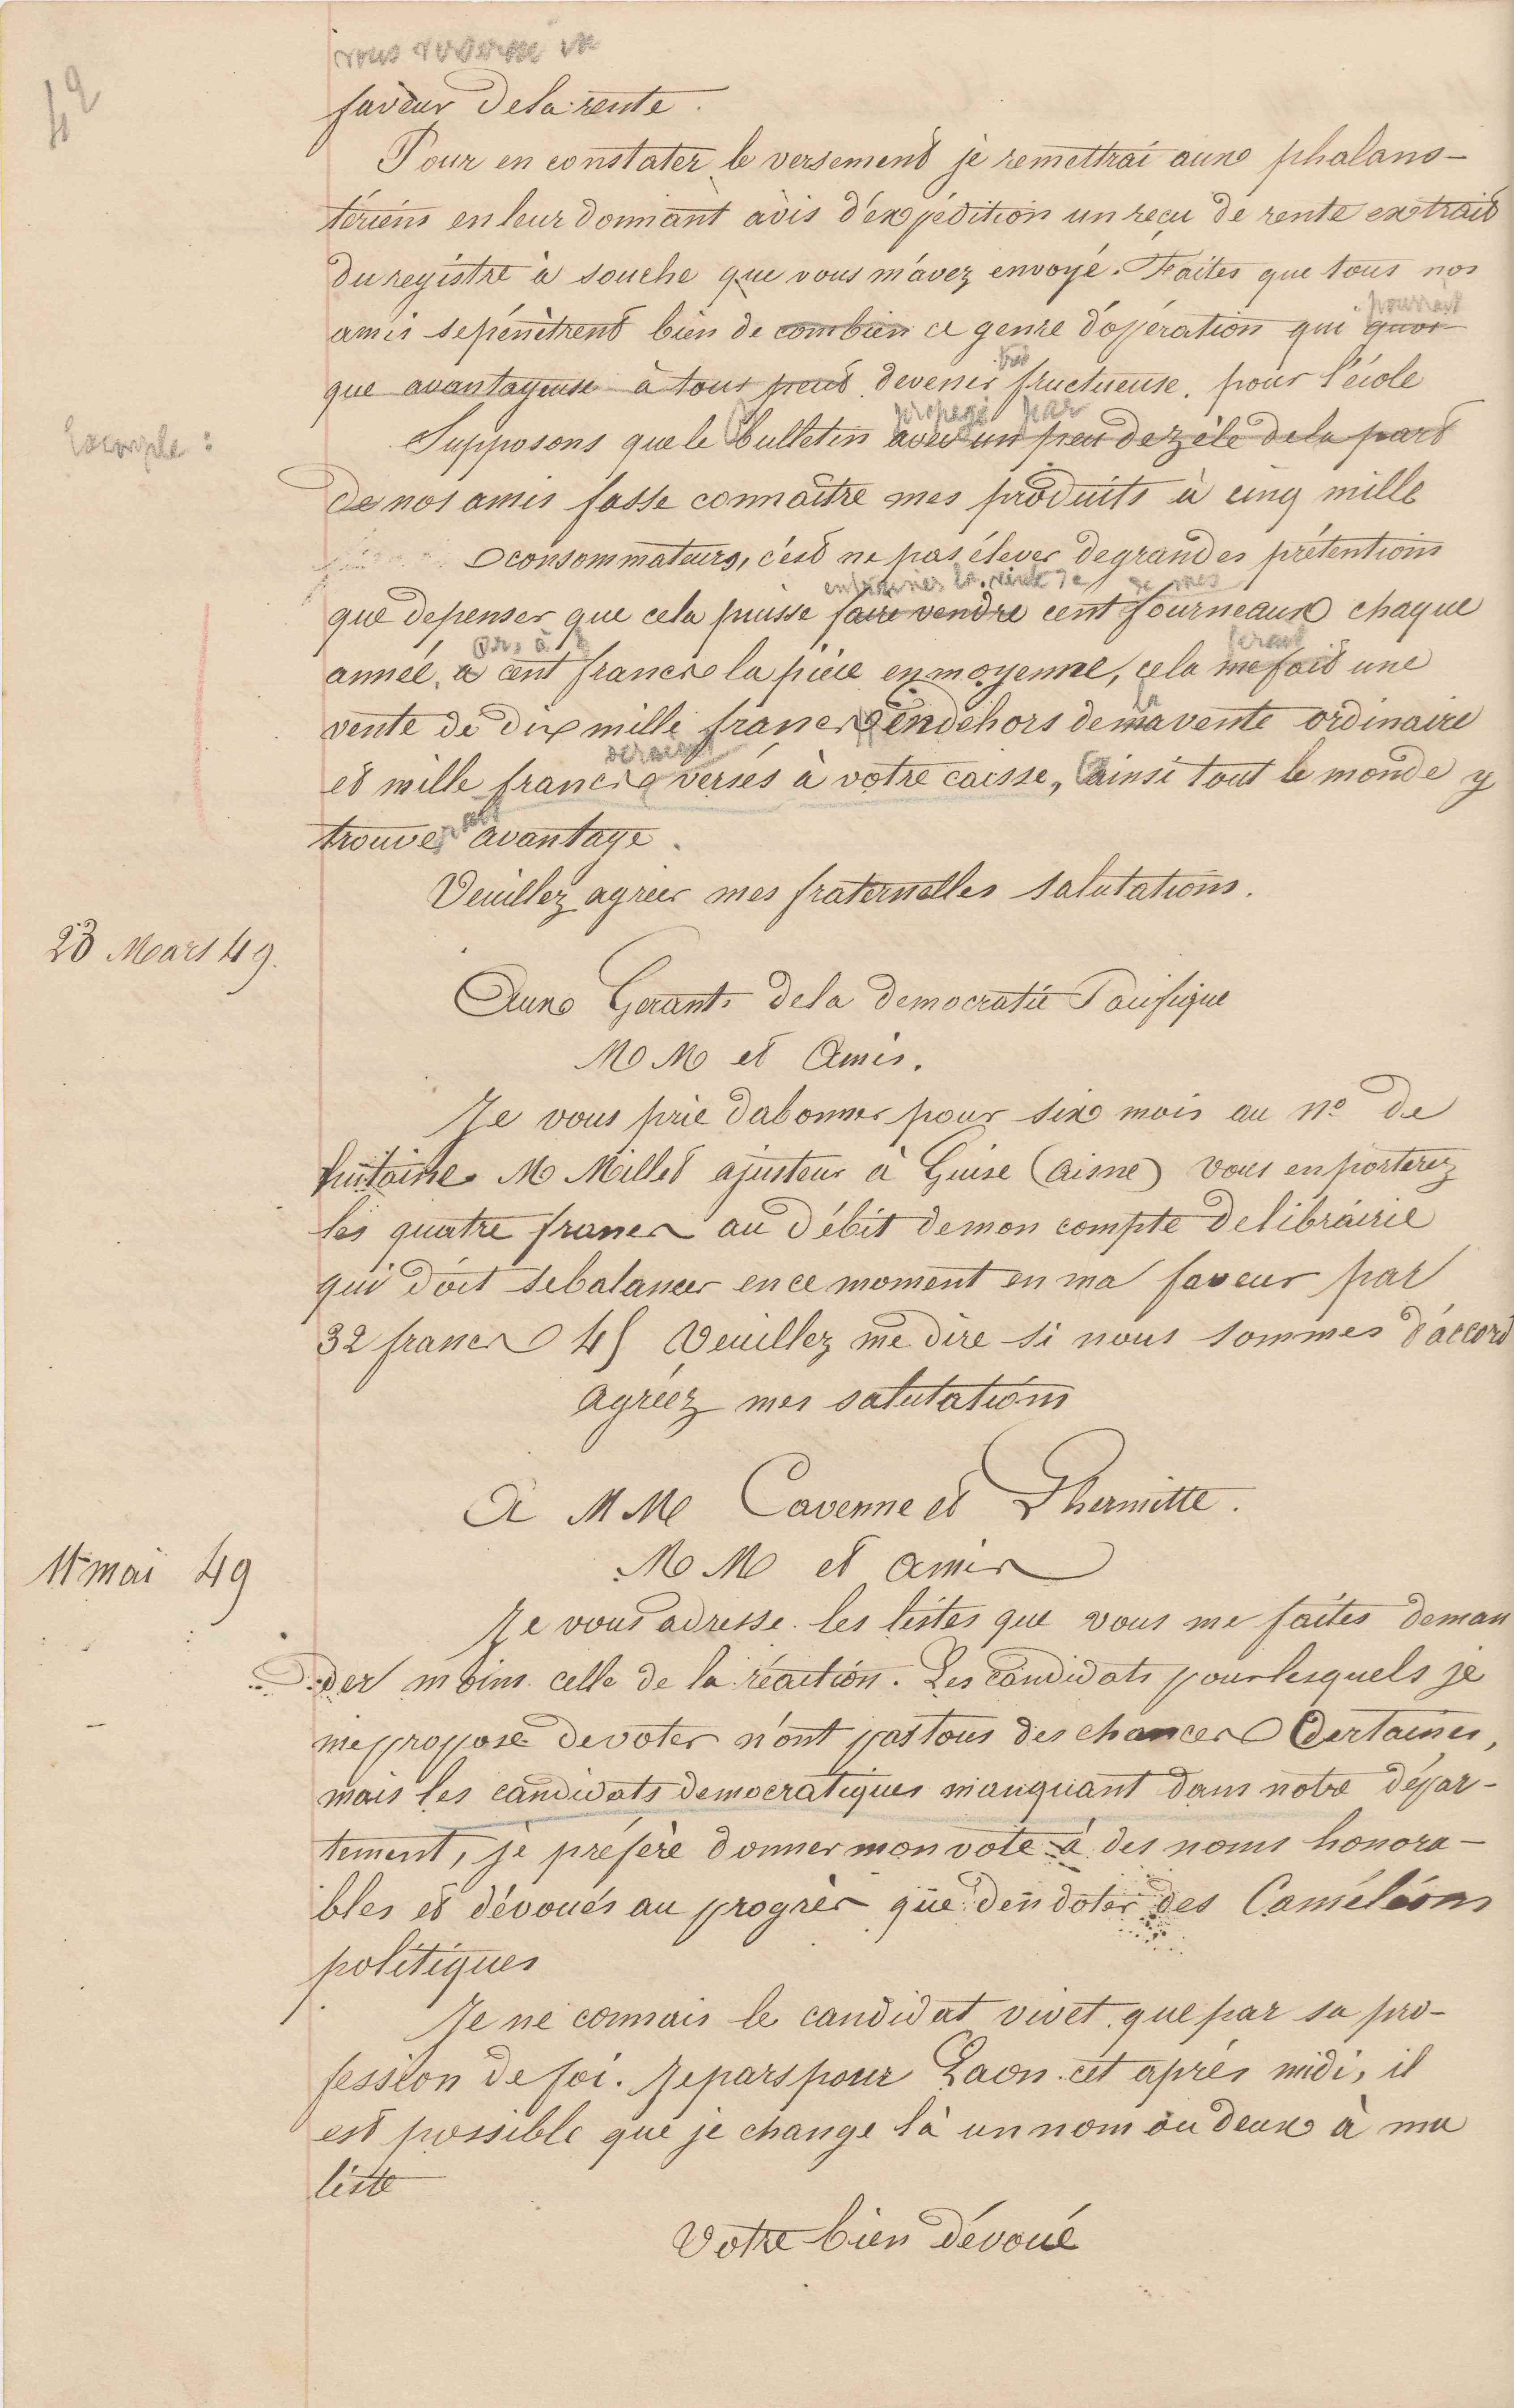 42
vous revenir en
faveur dela rente.
Pour en constater le versement je remettrai aux phalans-
tériens en leur donnant avis d'expédition un reçu de rente extrait
du registre à souche que vous m'avez envoyé. Faites que tous nos
pourrait
amis sepénètrent bien de combien ce genre d'opération qui quoi
très
que avantageuse à tous peut devenir fructueuse. pour l'école
propagé par
Exemple :
Supposons que le bulletin avec un peu de zèle dela part
de nos amis fasse connaître mes produits à cinq mille
consommateurs, c'est ne pas élever degrandes prétentions
entraîner la vente de de mes
que depenser que cela puisse faire vendre cent fourneaux chaque
ors à
ferait
année, a cent francs la pièce enmoyenne, cela me fait une
la
vente de dix mille francs endehors de ma vente ordinaire
seraient
et mille francs versés à votre caisse, ainsi tout le monde y
trouve avantage.
Veuillez agréer mes fraternelles salutations.
23 Mars 49.
Aux Gerants dela democratie Pacifique
M M et Amis.
Je vous prie dabonner pour six mois au no de
huitaine M Millet ajusteur à Guise (aisne) vous enporterez
les quatre francs au débit demon compte delibrairie
qui doit sebalancer ence moment en ma faveur par
32 francs 45 Veuillez me dire si nous sommes d'accord
agréez mes salutations
A M M Cavenne et Lhermitte.
M M et amis
11 mai 49
Je vous adresse les listes que vous me faites deman
der moins celle de la réaction. Les candidats pourlesquels je
mepropose devoter n'ont pastous des chances Certaines,
mais les candidats democratiques manquant dans notre dépar-
tement, je préfère donner mon vote à des noms honora-
bles et dévoués au progrès que d'en doter des Caméléons
politiques
Je ne connais le candidat vivet que par sa pro-
fession de foi. Jeparspour Laon cet après midi, il
est possible que je change là un nom ou deux à ma
liste
Votre bien dévoué